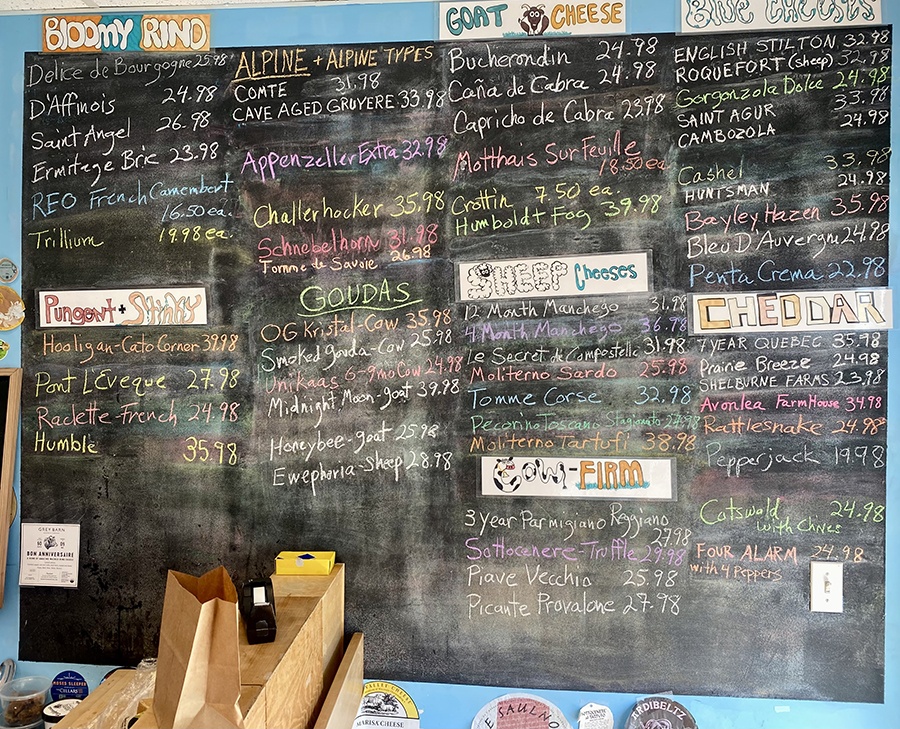 BLOOMY RIND
Delice de Bourgogne 25.98
D'Affinois 24.98
Saint Angel 26.98
Ermitage Brie 23.98
REO French Camembert
16.50 ea.
Trillium 19.98 ea.
PUNGENT + STINKY
Hooligan-Cato Corner 39.98
Pont L'Eveque 27.98
Raclette-French 24.98
Humble 35.98
ALPINE + ALPINE TYPES
COMTE 31.98
CAVE AGED GRUYERE 33.98
Appenzeller Extra 32.98
Challerhocker 35.98
Schnebelhorn 31.98
Tomme de Savoie 26.98
GOUDAS
OG Kristal-Cow 35.98
Smoked gouda-Cow 25.98
Unikaas 6-9mo Cow 24.98
Midnight Moon-goat 39.98
Honeybee-goat 25.98
Ewephoria-Sheep 28.98
GOAT CHEESE
Bucherondin 24.98
Caña de Cabra 24.98
Capricho de Cabra 23.98
Motthais Sur Feuille
18.50 ea.
Crottin 7.50 ea.
Humboldt Fog 39.98
SHEEP Cheeses
12 Month Manchego 31.98
4 Month Manchego 36.98
Le Secret de Compostelle 31.98
Moliterno Sardo 25.98
Tomme Corse 32.98
Pecorino Toscano Stagionato 27.98
Moliterno Tartufi 38.98
COW-FIRM
3 year Parmigiano Reggiano
27.98
Sottocenere-Truffle 29.98
Piave Vecchio 25.98
Picante Provalone 27.98
BLUE CHEESES
ENGLISH STILTON 32.98
ROQUEFORT (sheep) 32.98
Gorgonzola Dolce 24.98
SAINT AGUR 33.98
CAMBOZOLA 24.98
Cashel 33.98
HUNTSMAN 24.98
Bayley Hazen 35.98
Bleu D'Auvergne 24.98
Penta Crema 22.98
CHEDDAR
7 YEAR QUEBEC 35.98
Prairie Breeze 24.98
SHELBURNE FARMS 23.98
Avonlea FarmHouse 34.98
Rattlesnake 24.98
Pepperjack 19.98
Cotswald 24.98
with Chives
FOUR ALARM 24.98
with 4 Peppers
GREY BARN
BON ANNIVERSAIRE
CELLARS
MARISA CHEESE
LE SAULNO
ARDIBELTZ